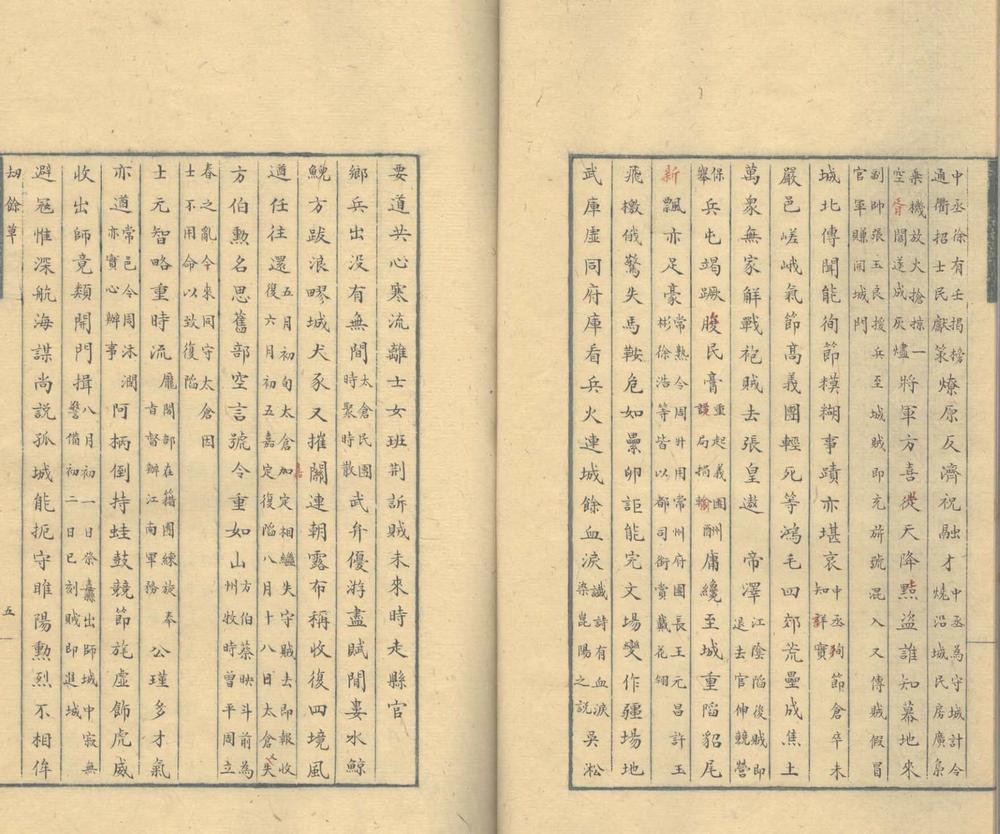 中丞徐有壬揭榜
通衢招士民獻策
燎原反濟祝融才
中丞為守城計令
燒沿城民房廣梟
乘機放火搶掠一
空胥閶遂成灰燼
將軍方喜從天降㸃盜誰知暮地來
副帥張玉良援兵至城賊即充旂號混入又傳賊假冒
官軍賺開城門
城北傳聞能徇節糢糊事蹟亦堪哀
中丞狥節倉卒未
知詳實
嚴邑嵯峨氣節髙義團輕死等鴻毛四郊荒壘成焦土
萬衆無家解戰袍賊去張皇邀 帝澤
江陰陷後賊即
退去官伸競營
保
舉
兵屯竭蹶朘民膏
重起義團
設局捐輸
酬庸纔至城重陷貂尾
新飄亦足豪
常熟令周廾用常州府團長王元昌許玉
彬徐浩等皆以都司銜賞戴花翎
飛檄俄驚失馬鞍危如纍卵詎能完文場變作疆場地
武庫虛同府庫看兵火連城餘血淚
讖詩有血淚
染崑陽之説
吳淞
要道共心寒流離士女班荆訴賊未來時走縣官
鄉兵出没有無間
太倉民團
時聚時散
武弁優游盡賦閒婁水鯨
鯢方跋浪疁城犬豕又摧關連朝露布稱收復四境風
遒任往還
五月初旬太倉加嘉定相繼失守賊去即報收
復六月初五嘉定復陷八月十八日太倉又失
方伯勲名思舊部空言號令重如山
方伯蔡映斗前為
州牧時曾平周立
春之亂今來同守太倉因
士不用命以致復陷
士元智略重時流
龐閣部在籍團練旋奉
旨督辦江南軍務
公瑾多才氣
亦遒
常邑令周沐潤
亦實心辦事
阿柄倒持蛙鼓競節旄虛飾虎威
收出師竟類開門揖
八月初一日祭纛出師城中寂無
警備初二日巳刻賊即進城
避冦惟深航海謀尚説孤城能扼守睢陽勲烈不相侔
刼餘草
五